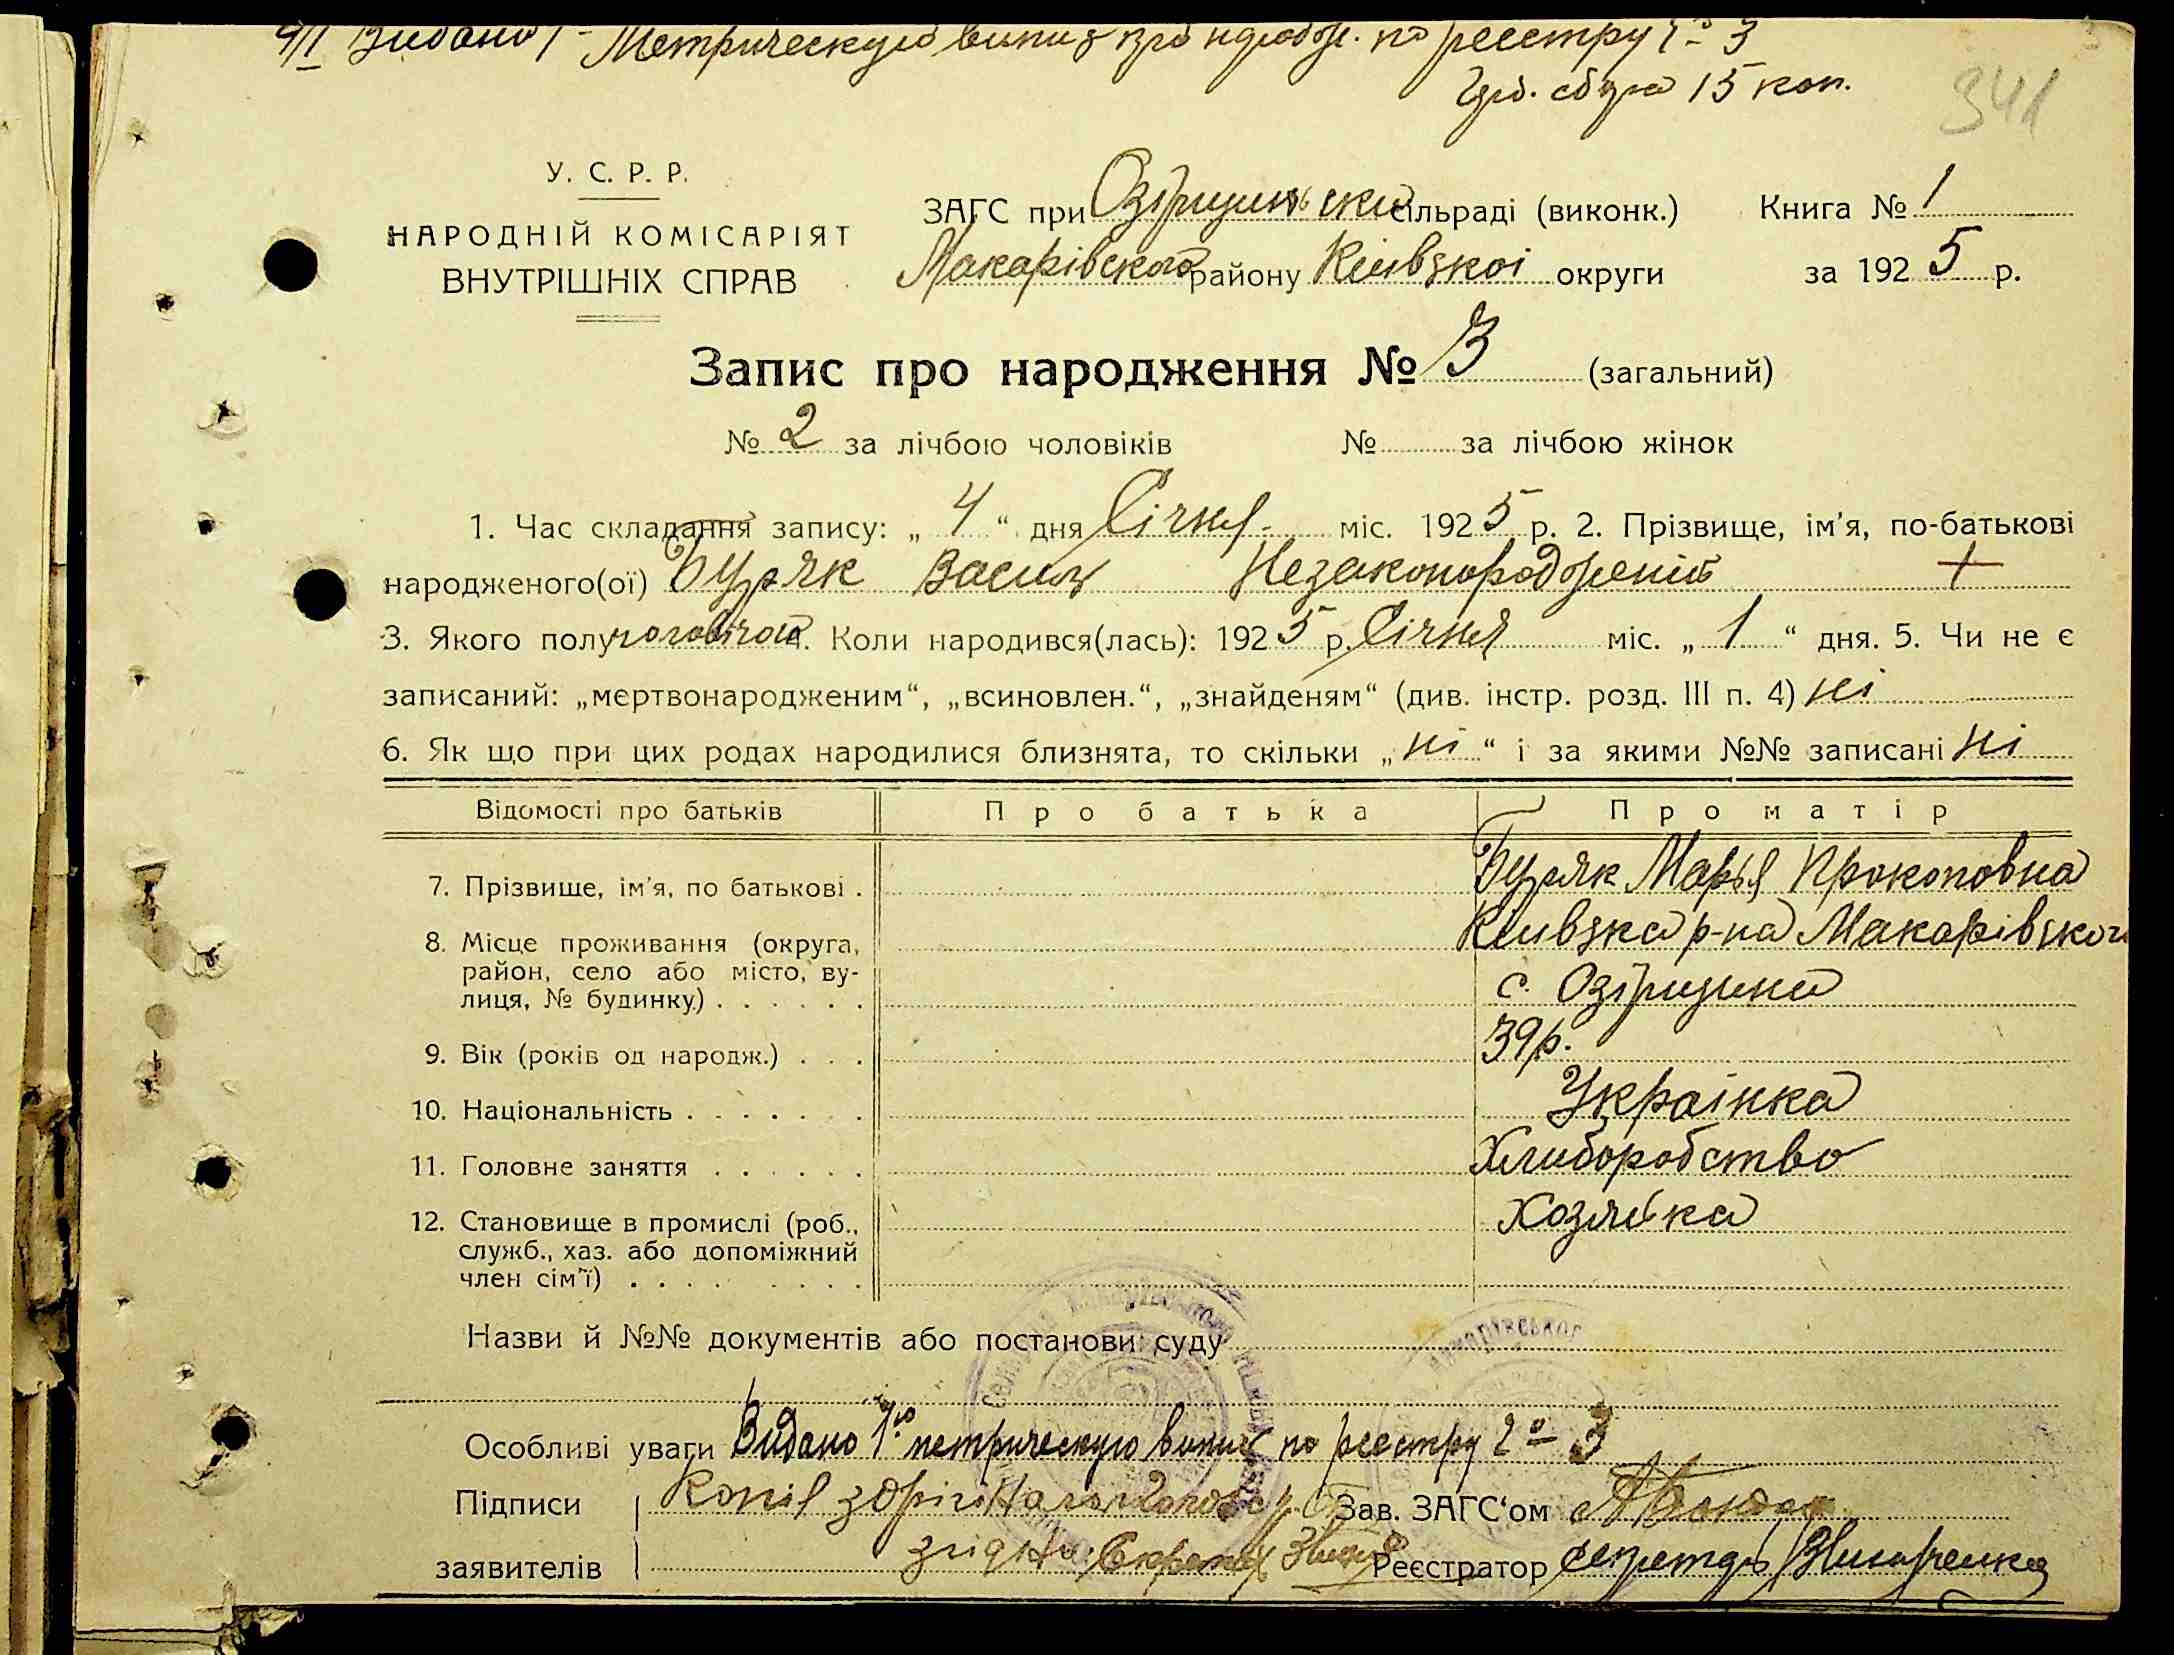 Видано 1 Метрическую випис про народж. по реестру № 3
Герб. сбора 15 коп.
341
У. С. Р. Р.
НАРОДНІЙ КОМІСАРІЯТ
ВНУТРІШНІХ СПРАВ
ЗАГС при Озірщиньский сільраді (виконк.) Книга № 1
Макарівского району Київзкоі округи за 1925 р.
Запис про народження № 3 (загальний)
№ 2 за лічбою чоловіків № за лічбою жінок
1. Час складання запису: „ 4 “ дня Січня міс. 1925 р. 2. Прізвище, ім'я, по-батькові
народженого(ої) Буряк Василь Незаконорожденій +
3. Якого полу чоловічой 4. Коли народився(лась): 1925 р. Січня міс. „ 1 “ дня. 5. Чи не є
записаний: „мертвонародженим“, „всиновлен.“, „знайденям“ (див. інстр. розд. III п. 4) ні
6. Як що при цих родах народилися близнята, то скільки „ ні “ і за якими №№ записані ні
Відомості про батьків Про батька Про матір
7. Прізвище, ім'я, по батькові . Буряк Марья Прокоповна
8. Місце проживання (округа, Киивзка р-на Макарівского
район, село або місто, ву-
лиця, № будинку) . . . . . . с. Озірщина
9. Вік (років од народж.) . . . 39 р.
10. Національність . . . . . . . Украінка
11. Головне заняття . . . . . . Хлиборобство
12. Становище в промислі (роб., Хозяйка
служб., хаз. або допоміжний
член сім'ї) . . . . . . . . .
Назви й №№ документів або постанови суду
Особливі уваги Видано 1ю метрическую випис по реестру № 3
Підписи Копія з орігіналом Зав. ЗАГС'ом
заявителів згідна: Секретар Реєстратор секретарь